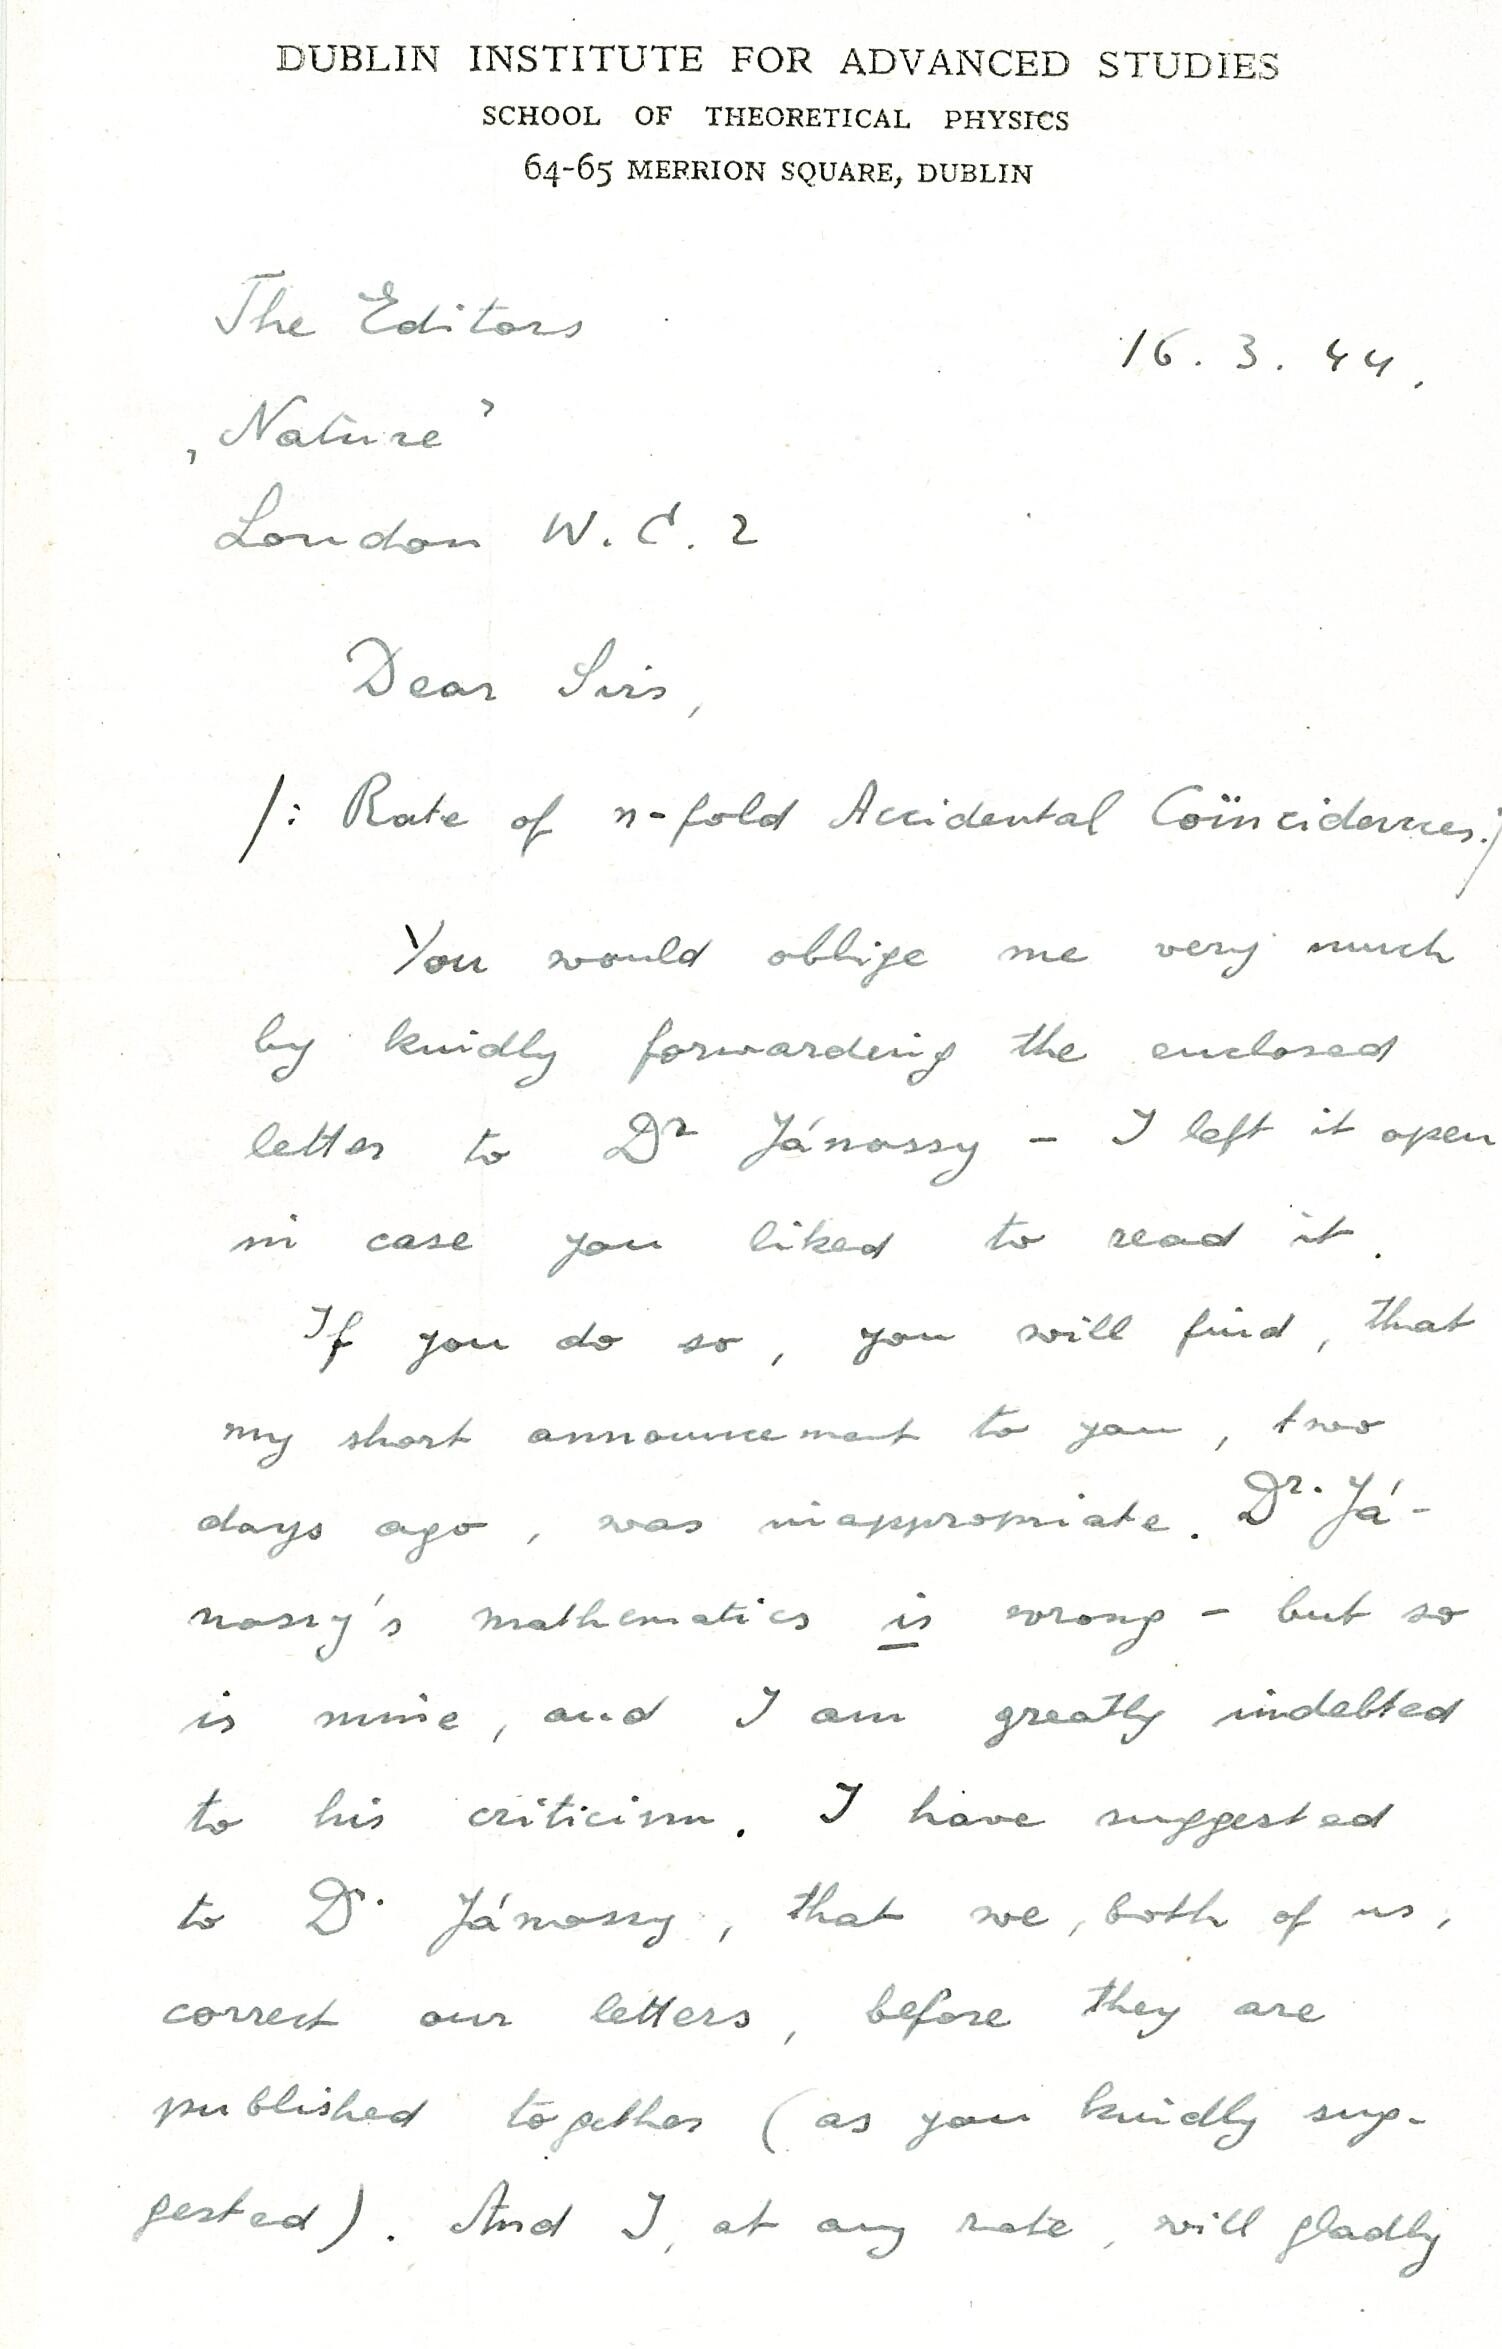 DUBLIN INSTITUTE FOR ADVANCED STUDIES
SCHOOL OF THEORETICAL PHYSICS
64-65 MERRION SQUARE, DUBLIN
The Editors
16. 3. 44.
„Nature”
London W. C. 2
Dear Sirs,
/: Rate of n-fold Accidental Coïncidences :/
You would oblige me very much
by kindly forwarding the enclosed
letter to Dr Jánossy – I left it open
in case you liked to read it.
If you do so, you will find, that
my short announcement to you, two
days ago, was inappropriate. Dr. Já-
nossy's mathematics is wrong – but so
is mine, and I am greatly indebted
to his criticism. I have suggested
to Dr. Jánossy, that we, both of us,
correct our letters, before they are
published together (as you kindly sug-
gested). And I, at any rate, will gladly